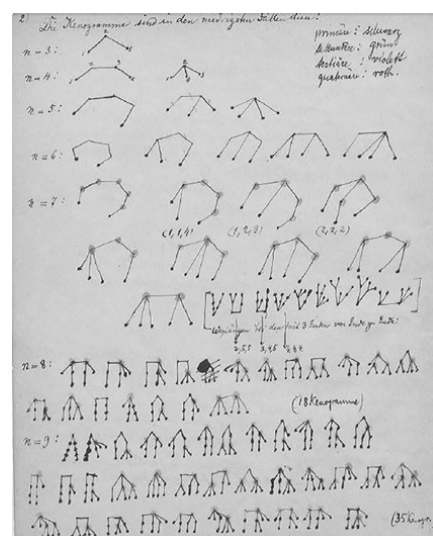 2) Die Kenogramme sind in den niedrigsten Fällen diese:
primäre : schwarz
sekundäre : grün
tertiäre : violett
quaternäre : roth.
n = 3:
n = 4:
n = 5:
n = 6:
n = 7:
(1,1,4) (1,2,3) (2,2,2)
von Ende zu Ende:
2,5,5 3,4,5 4,4,4
n=8:
(18 Kenogramme)
n=9:
(35 Kenogr.